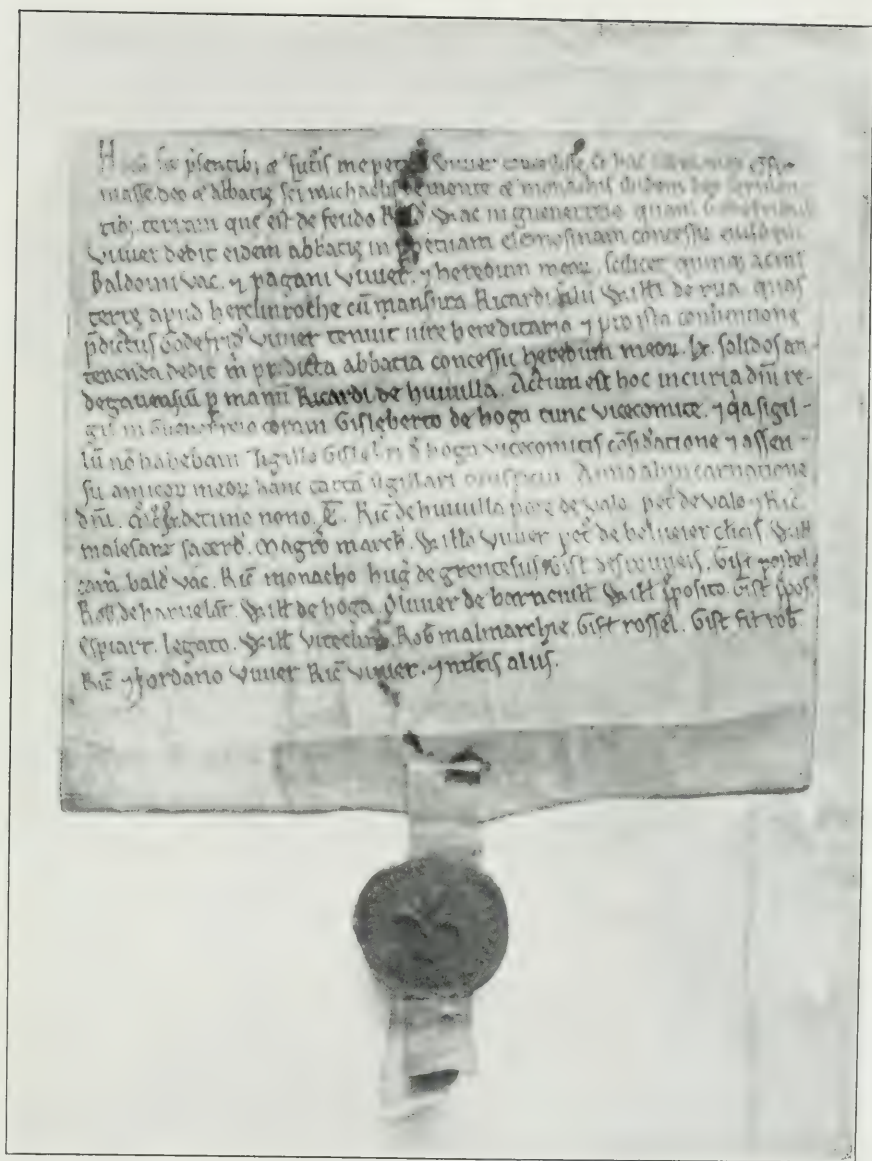 p̄sentib; ⁊ fut̾is me pet Viuier hac
masse deo ⁊ abbatię sci michaelis de monte ⁊ monachis ibidem deo seruien-
tib; terram que est de feudo Vac in guenerreio quam Godefridus
Viuier dedit eidem abbatię in ppetuam elemosinam concessu
Baldoini vac. ⁊ pagani viuier. ⁊ heredum meoꝝ. scilicet quinq; acras
terrę apud herclinrothe cū mansura Ricardi filii Willi de rua quas
p̄dictus Godefrid' viuier tenuit iure hereditario ⁊ pro ista conuentione
tenenda dedit m̄ pr̨dicta abbatia concessu heredum meoꝝ. lx. solidos an-
degauensiū p manū Ricardi de huiuilla. Actum est hoc in curia dn̄i re-
gis in Guenerreio coram Gisleberto de hoga tunc vicecomite. ⁊ q̇a sigil-
lū nō habebam sigillo Gisleb'ti d' hoga vicecomitis cōsid'atione ⁊ assen-
su amicoꝝ meoꝝ hanc cartā sigillari Anno ab incarnatione
dn̄i. decimo nono. T̄. Ric̄ de huiuilla de valo. pet' de valo ⁊ Ric̄
malesarz sacerd'. Magr̄o march'. Willo viuier pet' de belueier cl'icis Will
bald' vac. Ric̄ monacho hug' de grentesus
Rob' de haruelt. Will de hoga. Oliuier de barneuilt Will p̄posito. Gisl' p̄pos'.
espiart. legato. Will Rob' malmarchie. Gisl' rossel. Gisl' fil' rob'
Ric̄ ⁊ Jordano viuier Ric̄ viuier. ⁊ mltis aliis.